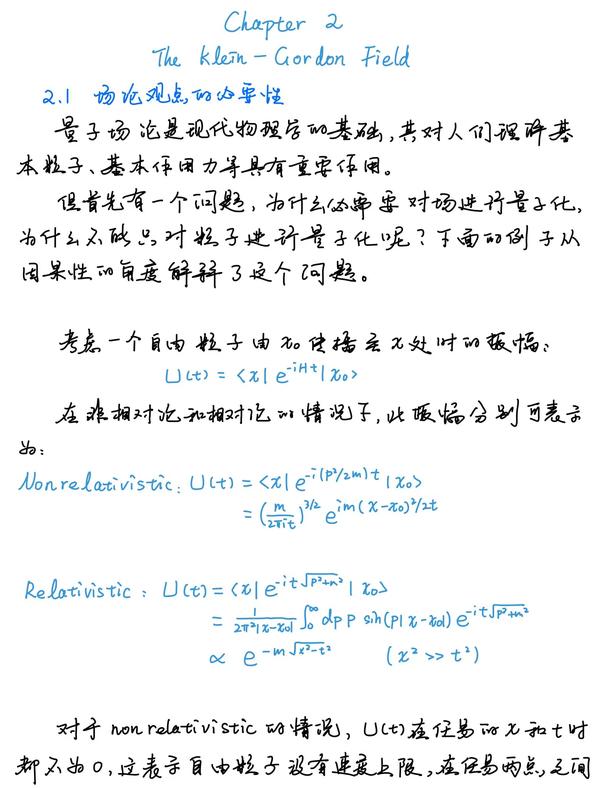 Chapter 2
The Klein-Gordon Field
2.1 场论观点的必要性
量子场论是现代物理学的基础,其对人们理解基
本粒子、基本作用力等具有重要作用。
但首先有一个问题,为什么必需要对场进行量子化,
为什么不能只对粒子进行量子化呢?下面的例子从
因果性的角度解释了这个问题。
考虑一个自由粒子由x₀传播至x处时的振幅:
U(t) = ⟨x| e^{-iHt} |x₀⟩
在非相对论和相对论的情况下,此振幅分别可表示
为:
Nonrelativistic: U(t) = ⟨x| e^{-i(p²/2m)t} |x₀⟩
= (m/2πit)^{3/2} e^{im(x-x₀)²/2t}
Relativistic: U(t) = ⟨x| e^{-it√(p²+m²)} |x₀⟩
= 1/(2π²|x-x₀|) ∫₀^∞ dp p sin(p|x-x₀|) e^{-it√(p²+m²)}
∝ e^{-m√(x²-t²)} (x² >> t²)
对于nonrelativistic的情况,U(t)在任易的x和t时
都不为0,这表示自由粒子没有速度上限,在任易两点之间